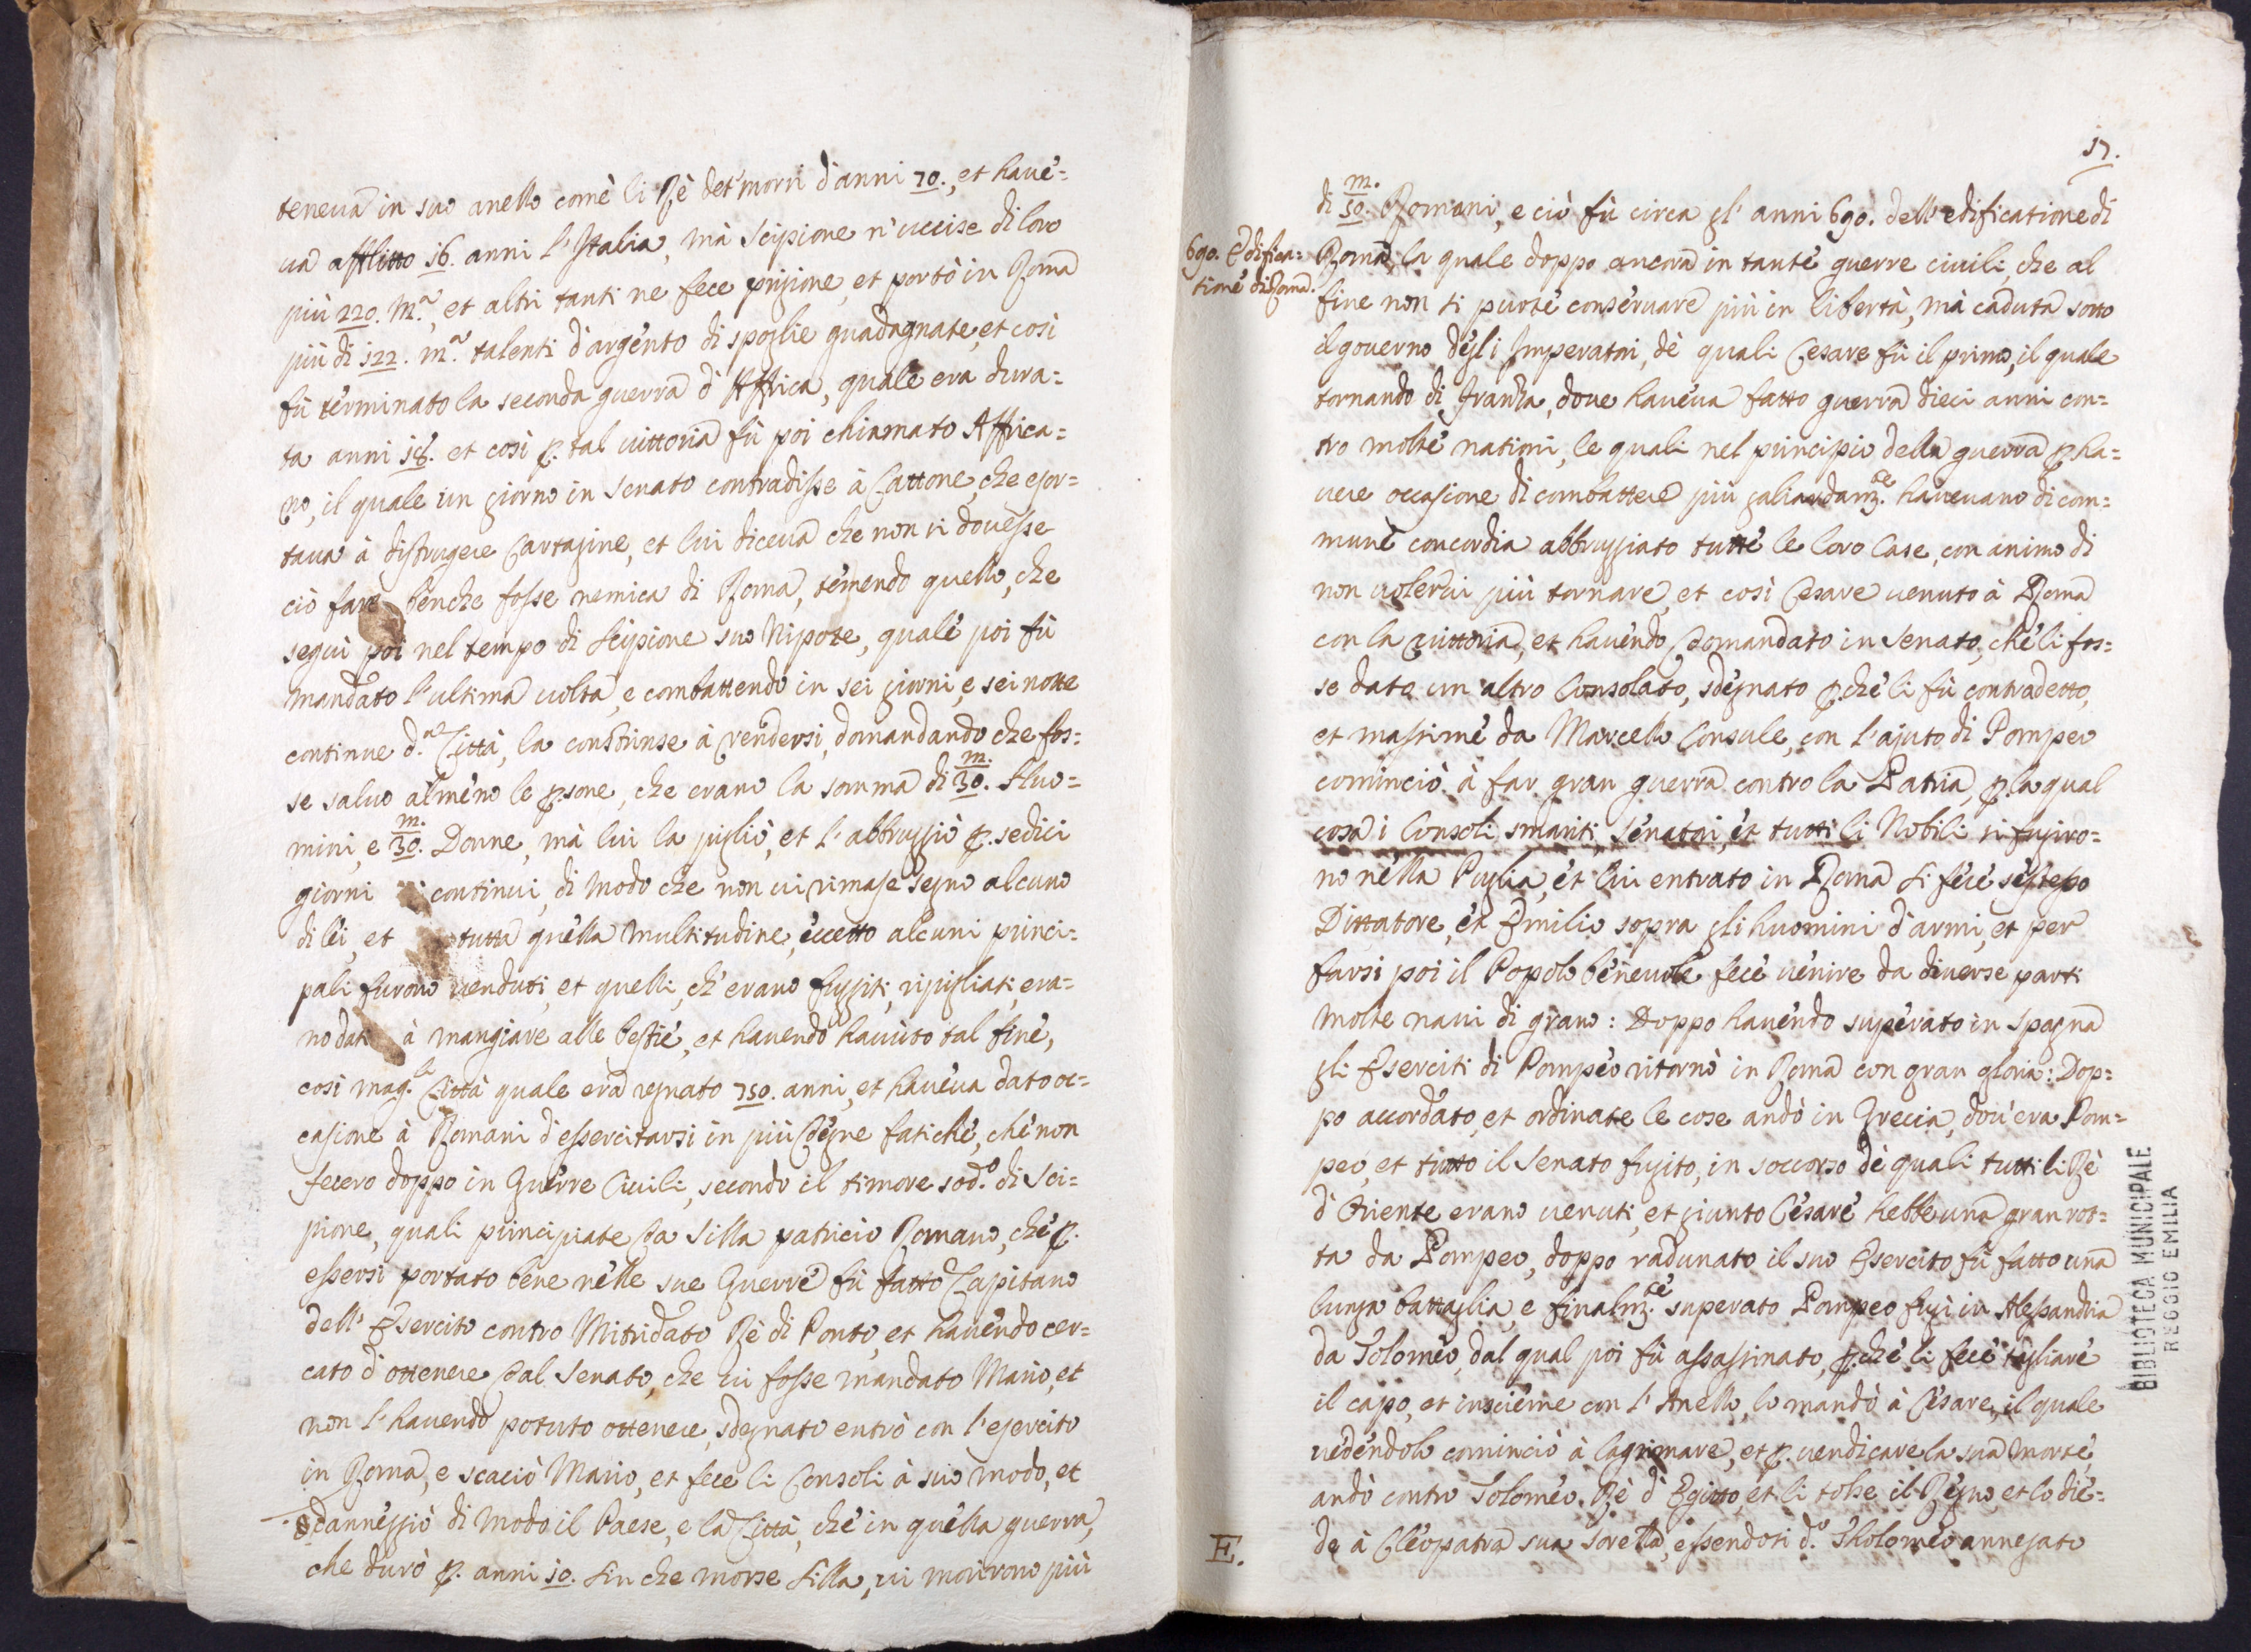 teneua in suo anello comè li Rè det' morri d'anni 70., et haue=
ua afflitto 16. anni l'Italia, mà Scipione n'uccise di loro
più 220. m.ª, et altri tanti ne fece prigione, et portò in Roma
più di 122. m.ª talenti d'argento di spoglie guadagnate, et così
fù terminato la seconda guerra d'Affrica, quale era dura=
ta anni 18. et così p. tal vittoria fù poi chiamato Affrica=
no, il quale un giorno in Senato contradisse à Cattone, che esor=
taua à distrugere Cartagine, et lui diceua che non si douesse
ciò fare benche fosse nemica di Roma, temendo quello, che
seguì poi nel tempo di Scipione suo Nipote, quale poi fù
mandato l'ultima uolta, e combattendo in sei giorni, e sei notte
continue d.ª Città, la constrinse à rendersi, domandando che fos=
se saluo almeno le p.sone, che erano la somma di 30.m. Huo=
mini, e 30.m. Donne, mà lui la pigliò, et l'abbruggiò p. sedici
giorni continui, di modo che non ui rimase segno alcuno
di lei, et tutta quella multitudine, eccetto alcuni princi=
pali furono uenduti, et quelli, ch'erano fuggiti, ripigliati, era=
no dati à mangiare alle bestie, et hauendo hauuto tal fine,
così mag.li Città quale era regnato 750. anni, et haueua dato oc=
casione à Romani d'essercitarsi in più degne fatiche, che non
fecero doppo in Guerre Ciuili, secondo il timore sod.º di Sci=
pione, quali principiate da Silla patricio Romano, che p.
essersi portato bene nelle sue Guerre fù fatto Capitano
dell'Esercito contro Mitridato Rè di Ponto, et hauendo cer=
cato d'ottenere dal Senato, che ui fosse mandato Mario, et
non l'hauendo potuto ottenere, sdegnato entrò con l'esercito
in Roma, e scaciò Mario, et fece li Consoli à suo modo, et
danneggiò di modo il Paese, e la Città, che in quella guerra,
che durò p. anni 10. sin che morse Silla, ui morirono più
17.
di 50.m. Romani, e ciò fù circa gl'anni 690. dell'edificatione di
690. Edifica=
tione di Roma.
Roma, la quale doppo ancora in tante guerre ciuili, che al
fine non si puote conseruare più in libertà, mà caduta sotto
il gouerno degli Imperatori, de quali Cesare fù il primo, il quale
tornando di Franza, doue haueua fatto guerra dieci anni con=
tro molte nationi, le quali nel principio della guerra p. ha=
uere occasione di combattere più galiardam.te haueuano di com=
mune concordia abbruggiato tutte le loro Case, con animo di
non uolerui più tornare, et così Cesare uenuto à Roma
con la vittoria, et hauendo domandato in Senato, che li fos=
se dato un altro Consolato, sdegnato p.che li fù contradetto,
et massime da Marcello Consule, con l'ajuto di Pompeo
cominciò à far gran guerra contro la Patria, p. la qual
cosa i Consoli smariti, Senatori, et tutti li Nobili si fugiro=
no nella Puglia, et lui entrato in Roma si fece se stesso
Dittatore, et Emilio sopra gli huomini d'armi, et per
farsi poi il Popolo beneuole fece uenire da diuerse parti
molte naui di grano: Doppo hauendo superato in Spagna
gli Eserciti di Pompeo ritornò in Roma con gran gloria: Dop=
po accordato, et ordinate le cose andò in Grecia, dou'era Pom=
peo, et tutto il Senato fugito, in soccorso de quali tutti li Rè
d'Oriente erano uenuti, et giunto Cesare hebbe una gran rot=
ta da Pompeo, doppo radunato il suo Esercito fù fatto una
lunga battaglia, e finalm.te superato Pompeo fugì in Alessandria
da Tolomeo, dal qual poi fù assassinato, p.che li fece tagliare
il capo, et insieme con l'Anello, lo mandò à Cesare, il quale
uedendolo cominciò à lagrimare, et p. uendicare la sua morte
andò contro Tolomeo Rè d'Egitto, et li tolse il Regno, et lo die=
de à Cleopatra sua sorella, essendosi d.º Tholomeo annegato
E.
BIBLIOTECA MUNICIPALE
REGGIO EMILIA